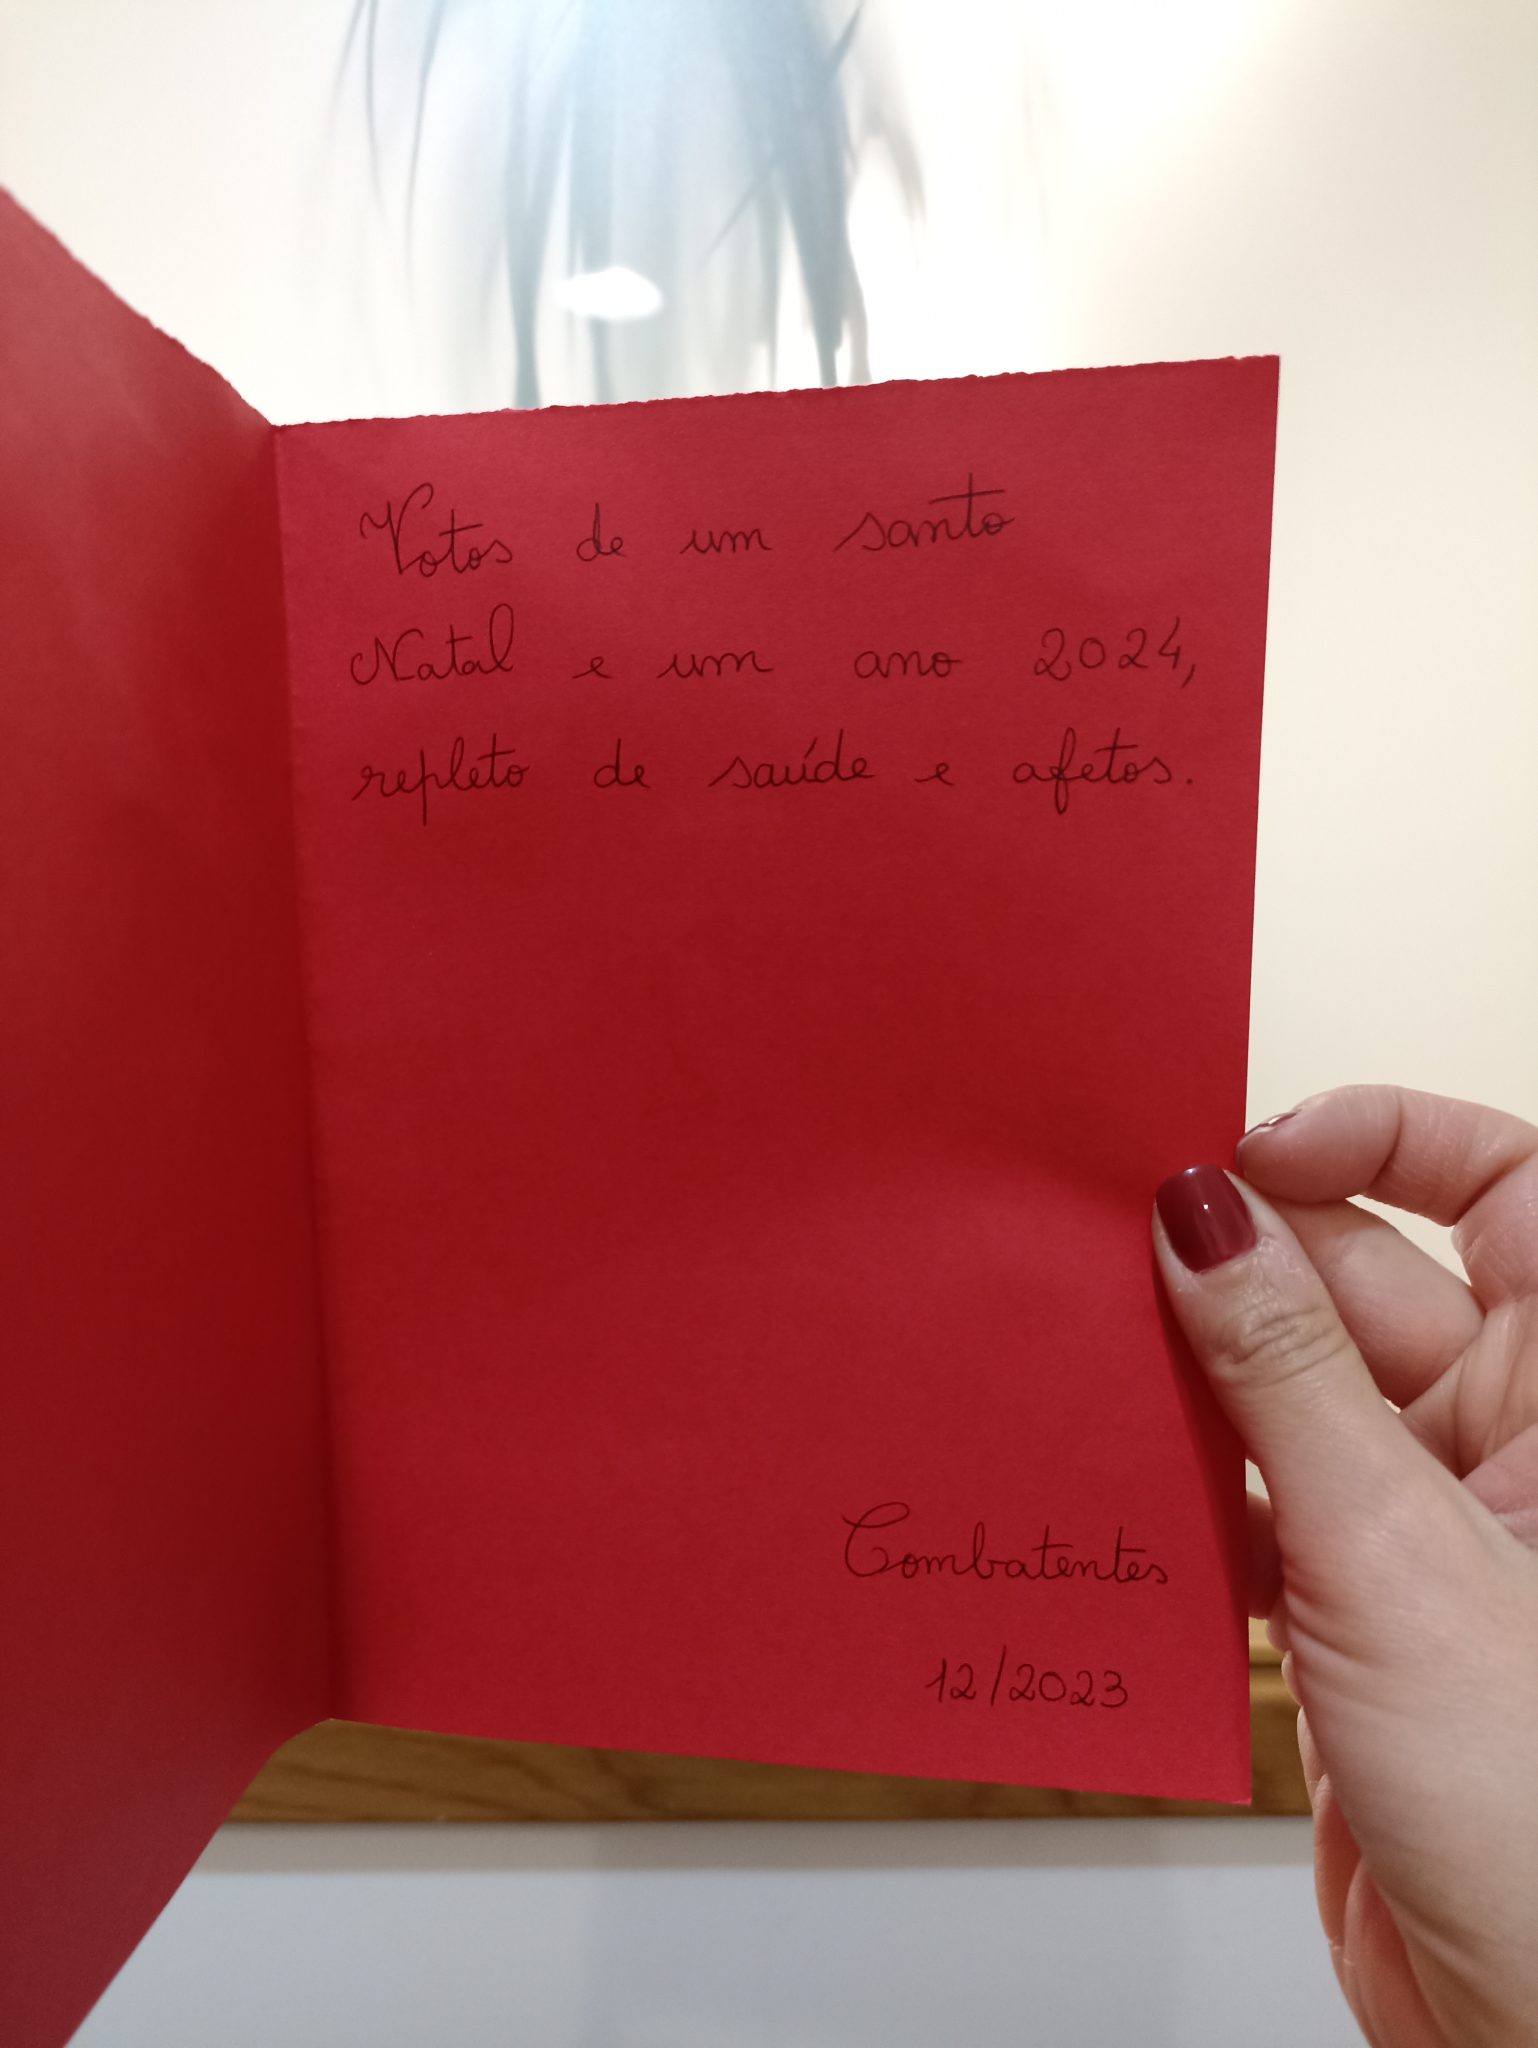 Votos de um santo
Natal e um ano 2024,
repleto de saúde e afetos.
Combatentes
12/2023